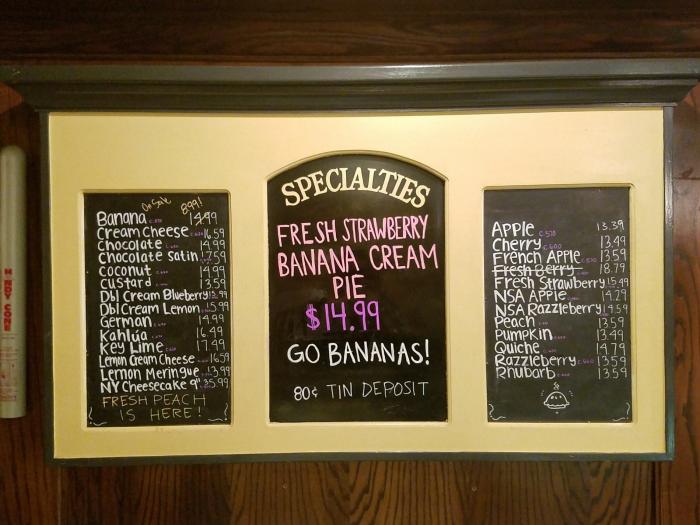 On Sale 8.99!
Banana 14.99
Cream Cheese 16.59
Chocolate 14.99
Chocolate Satin 17.59
coconut 14.99
custard 13.59
Dbl Cream Blueberry 15.99
Dbl Cream Lemon 15.99
German 14.99
Kahlúa 16.49
Key Lime 17.49
Lemon Cream Cheese 16.59
Lemon Meringue 13.99
NY Cheesecake 9" 35.99
FRESH PEACH
IS HERE!
SPECIALTIES
FRESH STRAWBERRY
BANANA CREAM
PIE
$14.99
GO BANANAS!
80¢ TIN DEPOSIT
Apple 13.39
Cherry 13.49
French Apple 13.59
Fresh Berry 18.79
Fresh Strawberry 15.49
NSA Apple 14.29
NSA Razzleberry 14.59
Peach 13.59
Pumpkin 13.49
Quiche 14.79
Razzleberry 13.59
Rhubarb 13.59